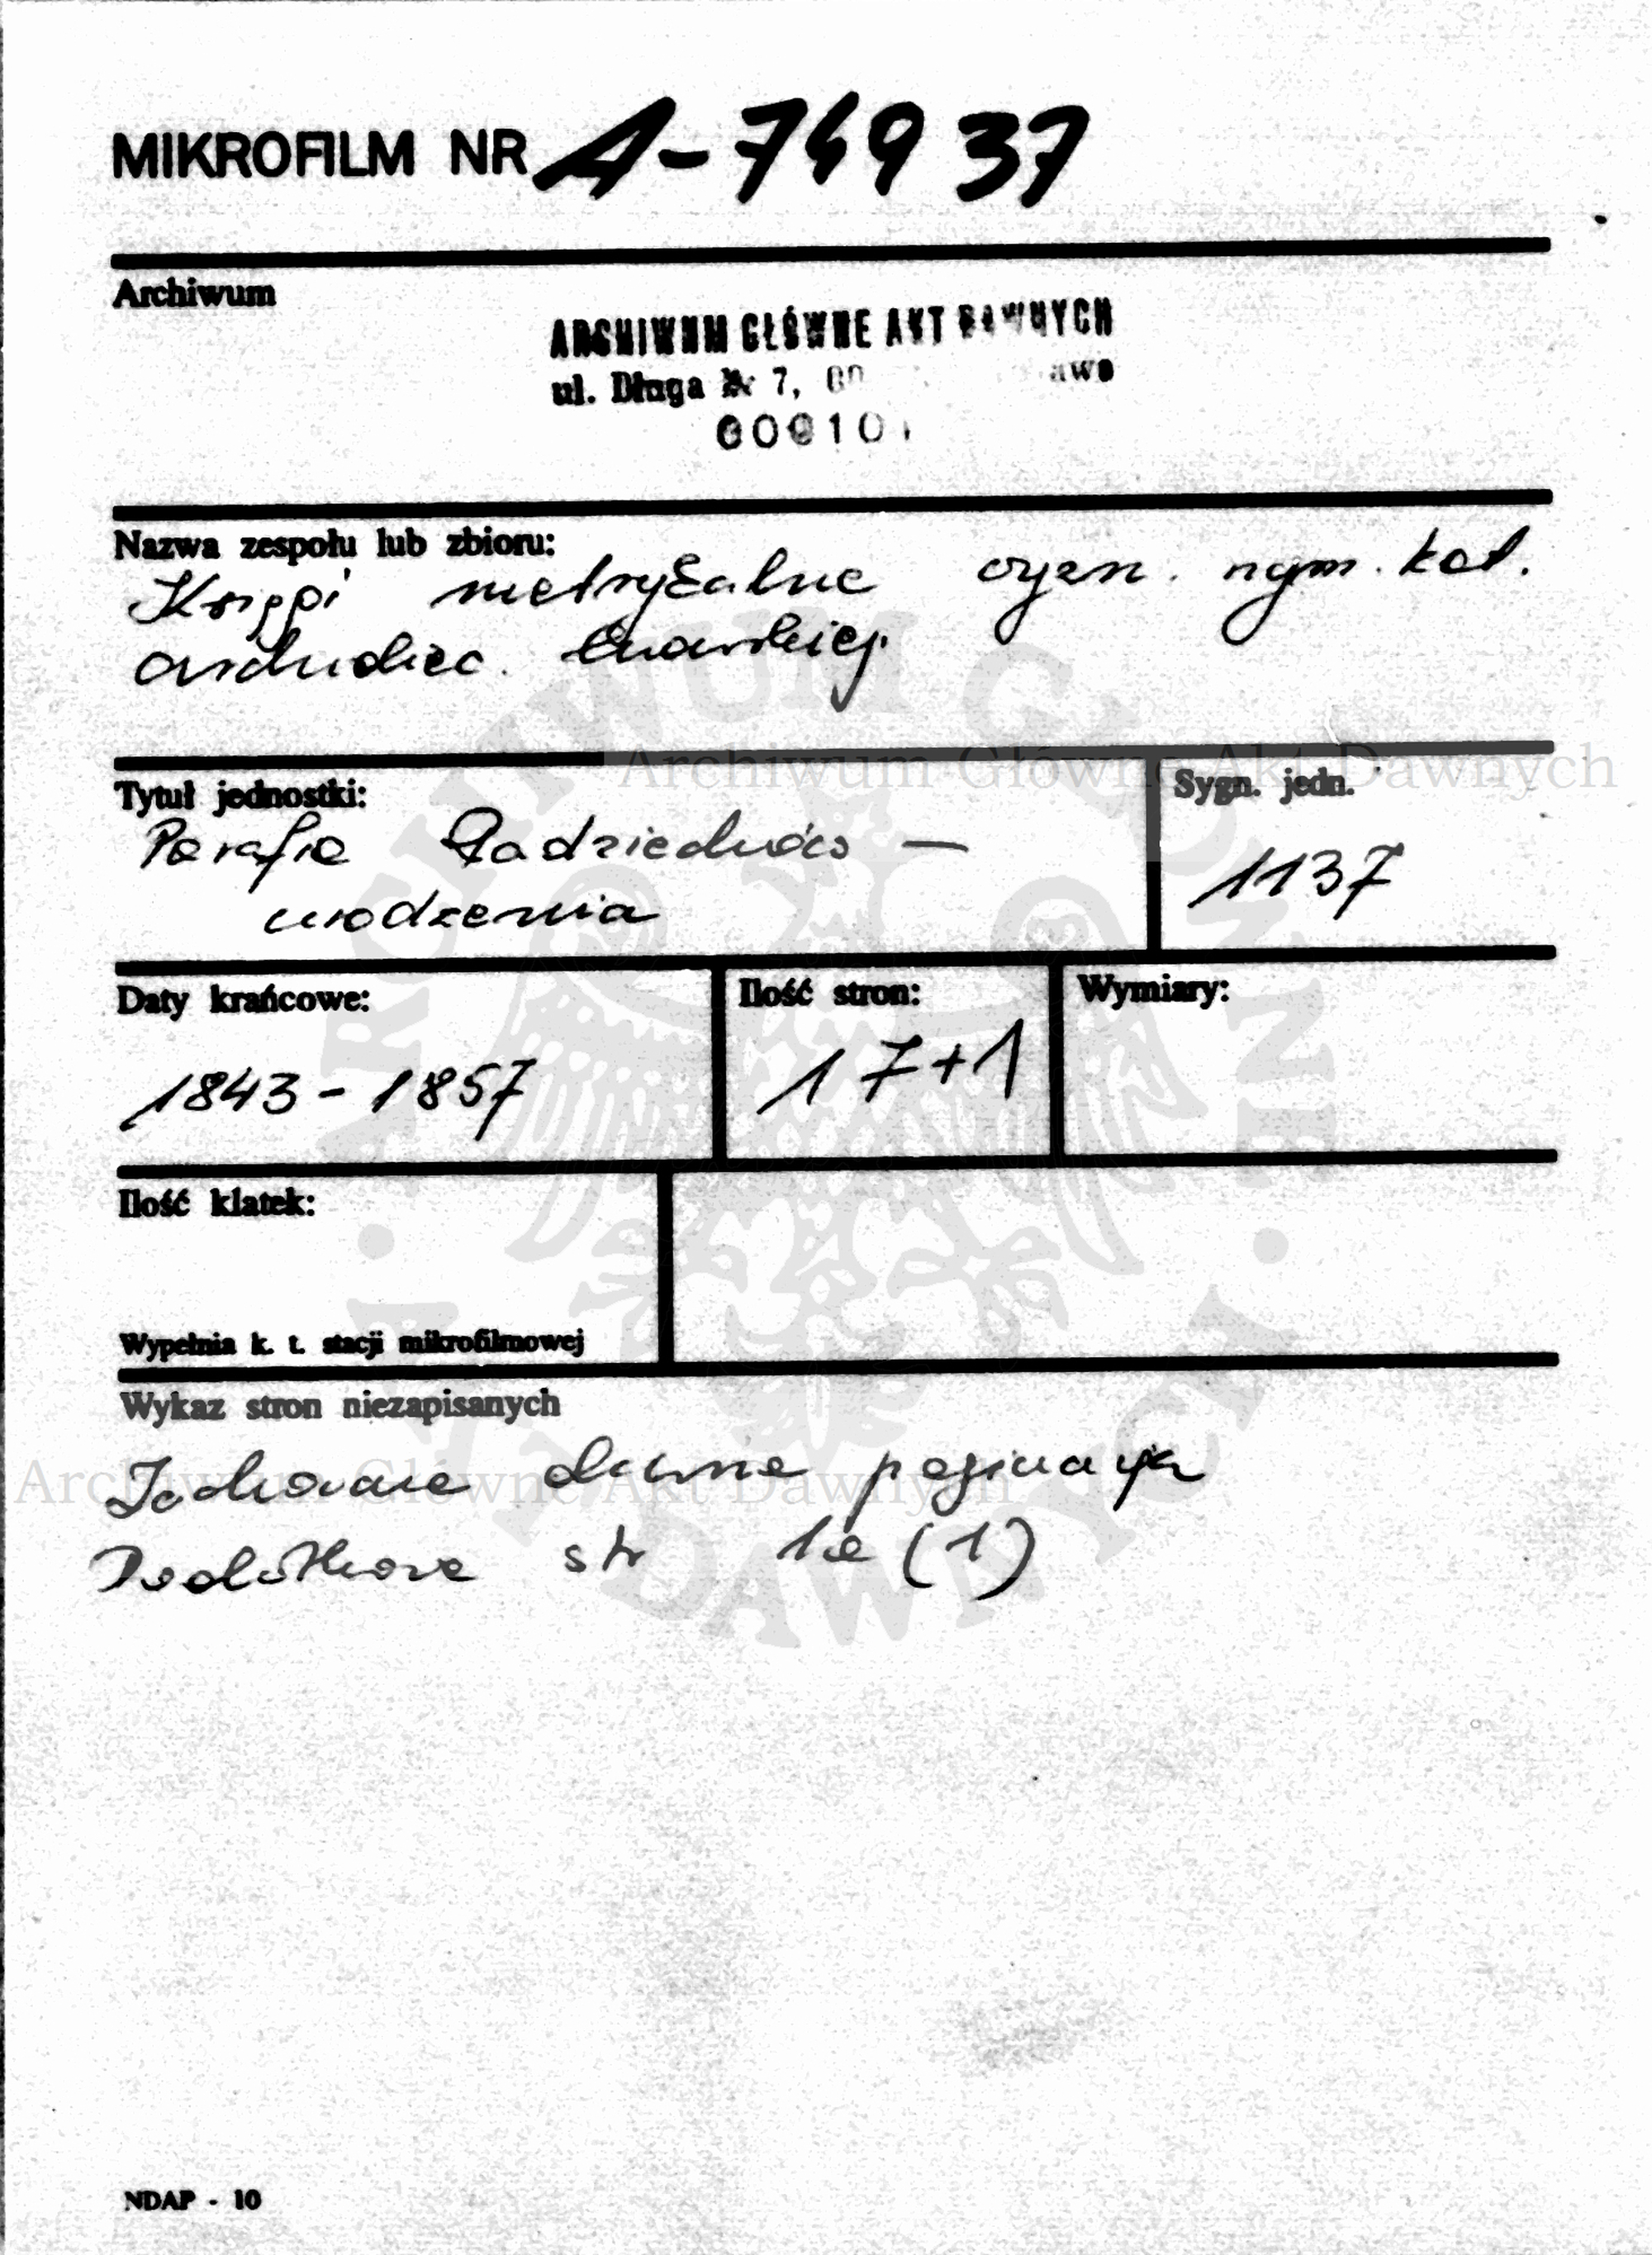 MIKROFILM NR A-74937
Archiwum
ARCHIWUM GŁÓWNE AKT DAWNYCH
ul. Długa Nr 7,
Nazwa zespołu lub zbioru:
Księgi metrykalne rzym. kat.
archidiec. lwowskiej
Archiwum Główne Akt Dawnych
Tytuł jednostki:
Sygn. jedn.
Parafia Radziechów —
urodzenia
1137
Daty krańcowe:
Ilość stron:
Wymiary:
1843 - 1857
17+1
Ilość klatek:
Wypełnia k. t. stacji mikrofilmowej
Wykaz stron niezapisanych
Zachowane dawna paginacja
Archiwum Główne Akt Dawnych
Dodatkowa str 1a (1)
ARCHIWUM GŁÓWNE
AKT DAWNYCH
NDAP - 10